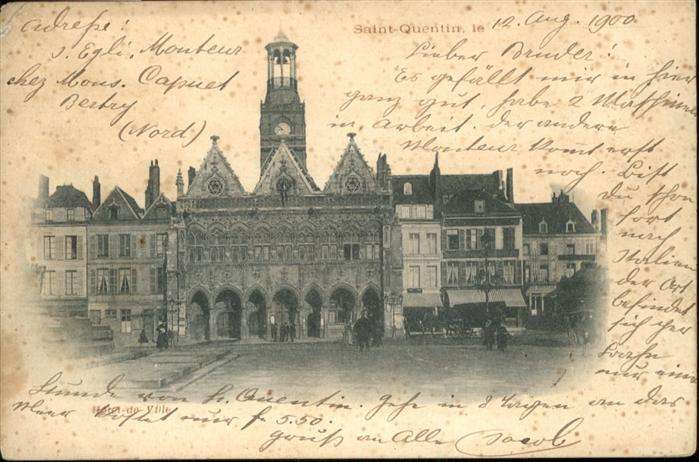 Saint-Quentin, le 12. Aug. 1900
Adresse:
s. Egli, Monteur
chez Mons. Capuet
Bertry
(Nord)
Lieber Bruder!
Es gefällt mir in hier
ganz gut, habe 2 Maschinen
in Arbeit. der andere
Monteur kommt erst
noch. Bist
du schon
fort
nach
Italien
der Ort
befindet
sich
nur eine
Stunde von St. Quentin. Gehe in 8 Tagen an das
Meer kostet nur f. 5.50.
Gruß an Alle Jacob
Hôtel de Ville